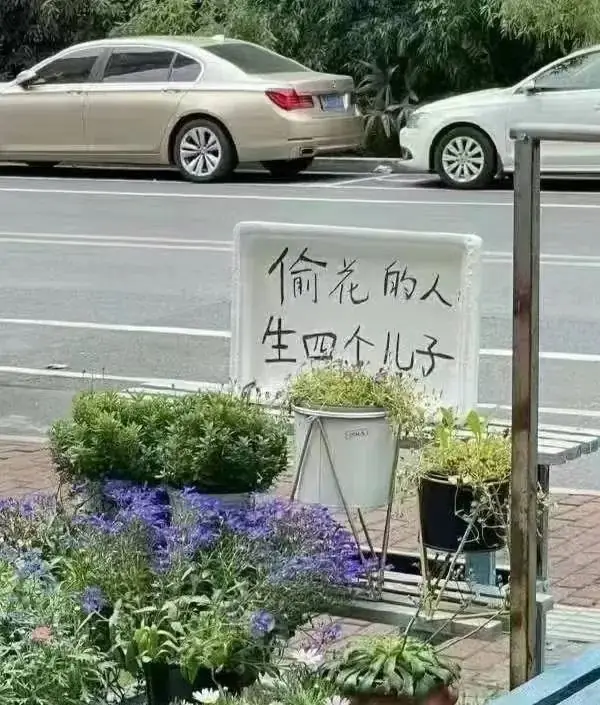 偷花的人
生四个儿子